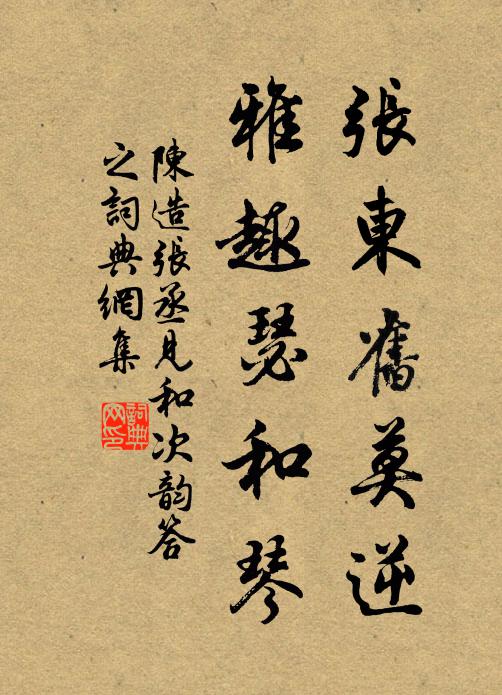 張東舊莫逆
雅趣瑟和琴
陳造張丞見和次韵答
之詞典網集
詞典網印